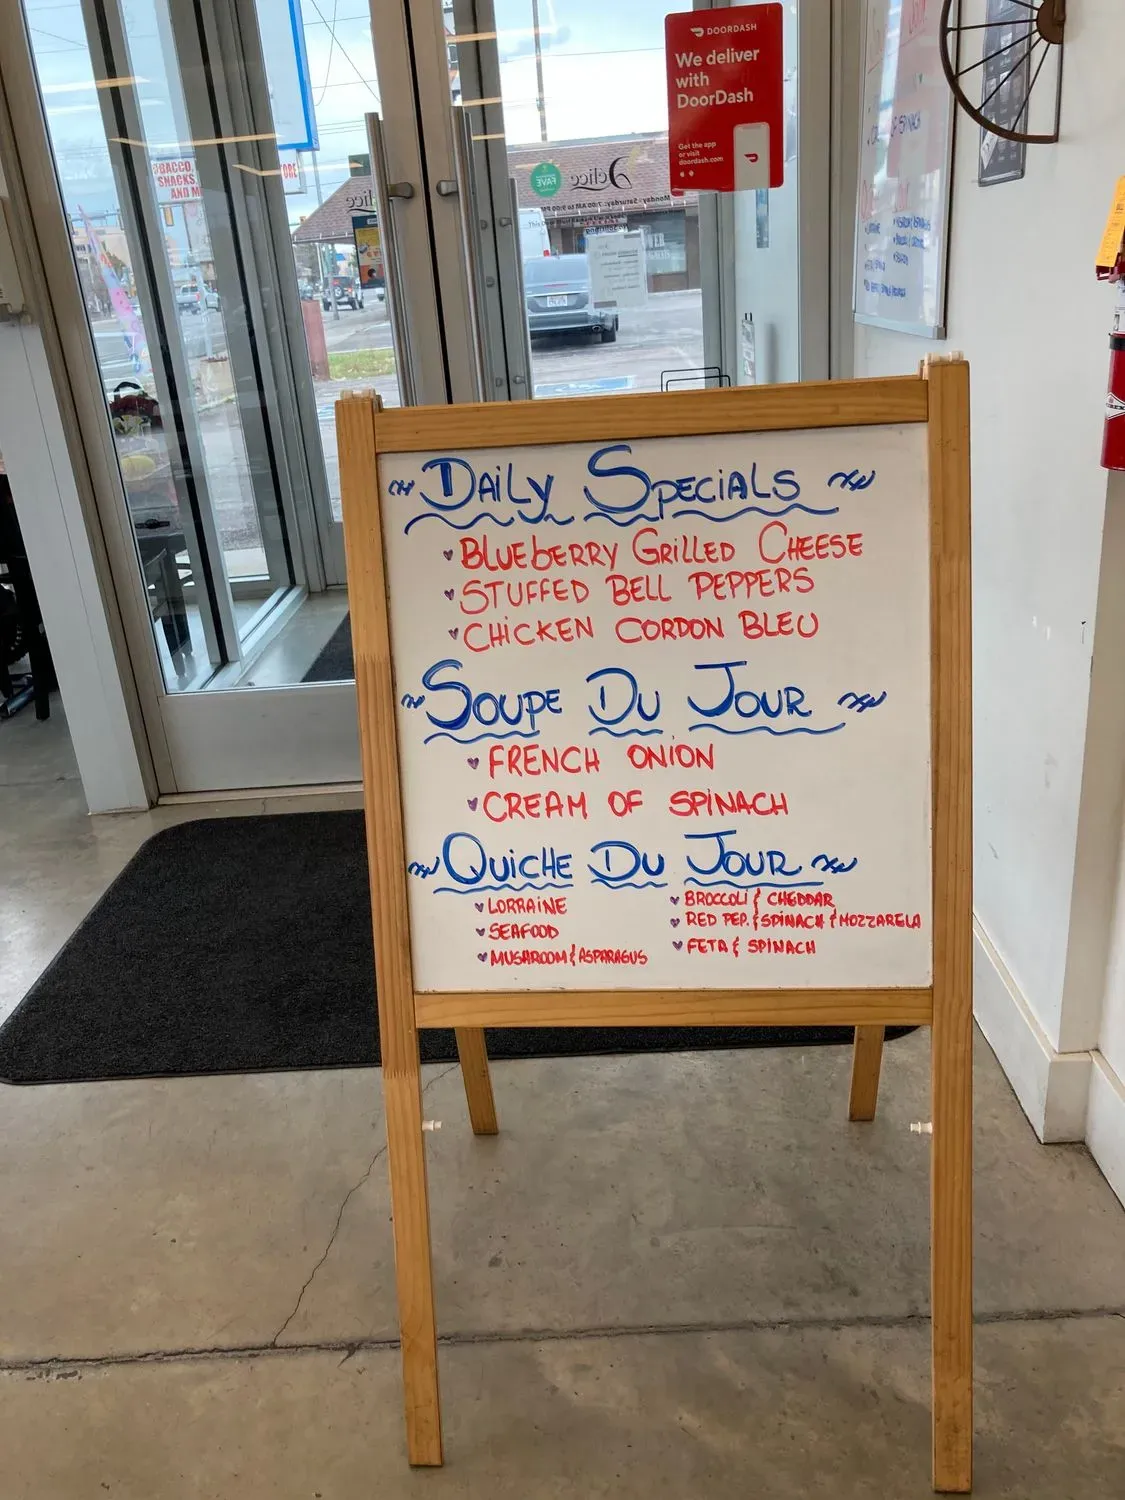 DOORDASH
We deliver
with
DoorDash
Get the app
or visit
doordash.com
TOBACCO,
SNACKS,
AND M
ORE
FAVE
Délice
Monday - Saturday: 7:00 AM to
Daily Specials
Blueberry Grilled Cheese
Stuffed Bell Peppers
Chicken Cordon Bleu
Soupe Du Jour
French Onion
Cream of Spinach
Quiche Du Jour
Lorraine
Seafood
Mushroom & Asparagus
Broccoli & Cheddar
Red Pep. & Spinach & Mozzarela
Feta & Spinach